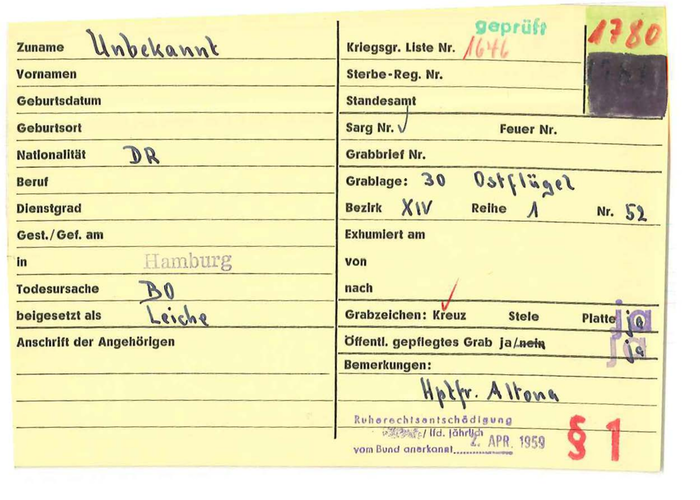 geprüft
1780
Zuname Unbekannt
Vornamen
Geburtsdatum
Geburtsort
Nationalität DR
Beruf
Dienstgrad
Gest./Gef. am
in Hamburg
Todesursache BO
beigesetzt als Leiche
Anschrift der Angehörigen
Kriegsgr. Liste Nr. 1646
Sterbe-Reg. Nr.
Standesamt
Sarg Nr. Feuer Nr.
Grabbrief Nr.
Grablage: 30 Ostflügel
Bezirk XIV Reihe 1 Nr. 52
Exhumiert am
von
nach
Grabzeichen: Kreuz Stele Platte ja
Öffentl. gepflegtes Grab ja/nein ja
Bemerkungen:
Hptfr. Altona
Ruherechtsentschädigung
/ lfd. jährlich
vom Bund anerkannt 2. APR. 1959
§ 1